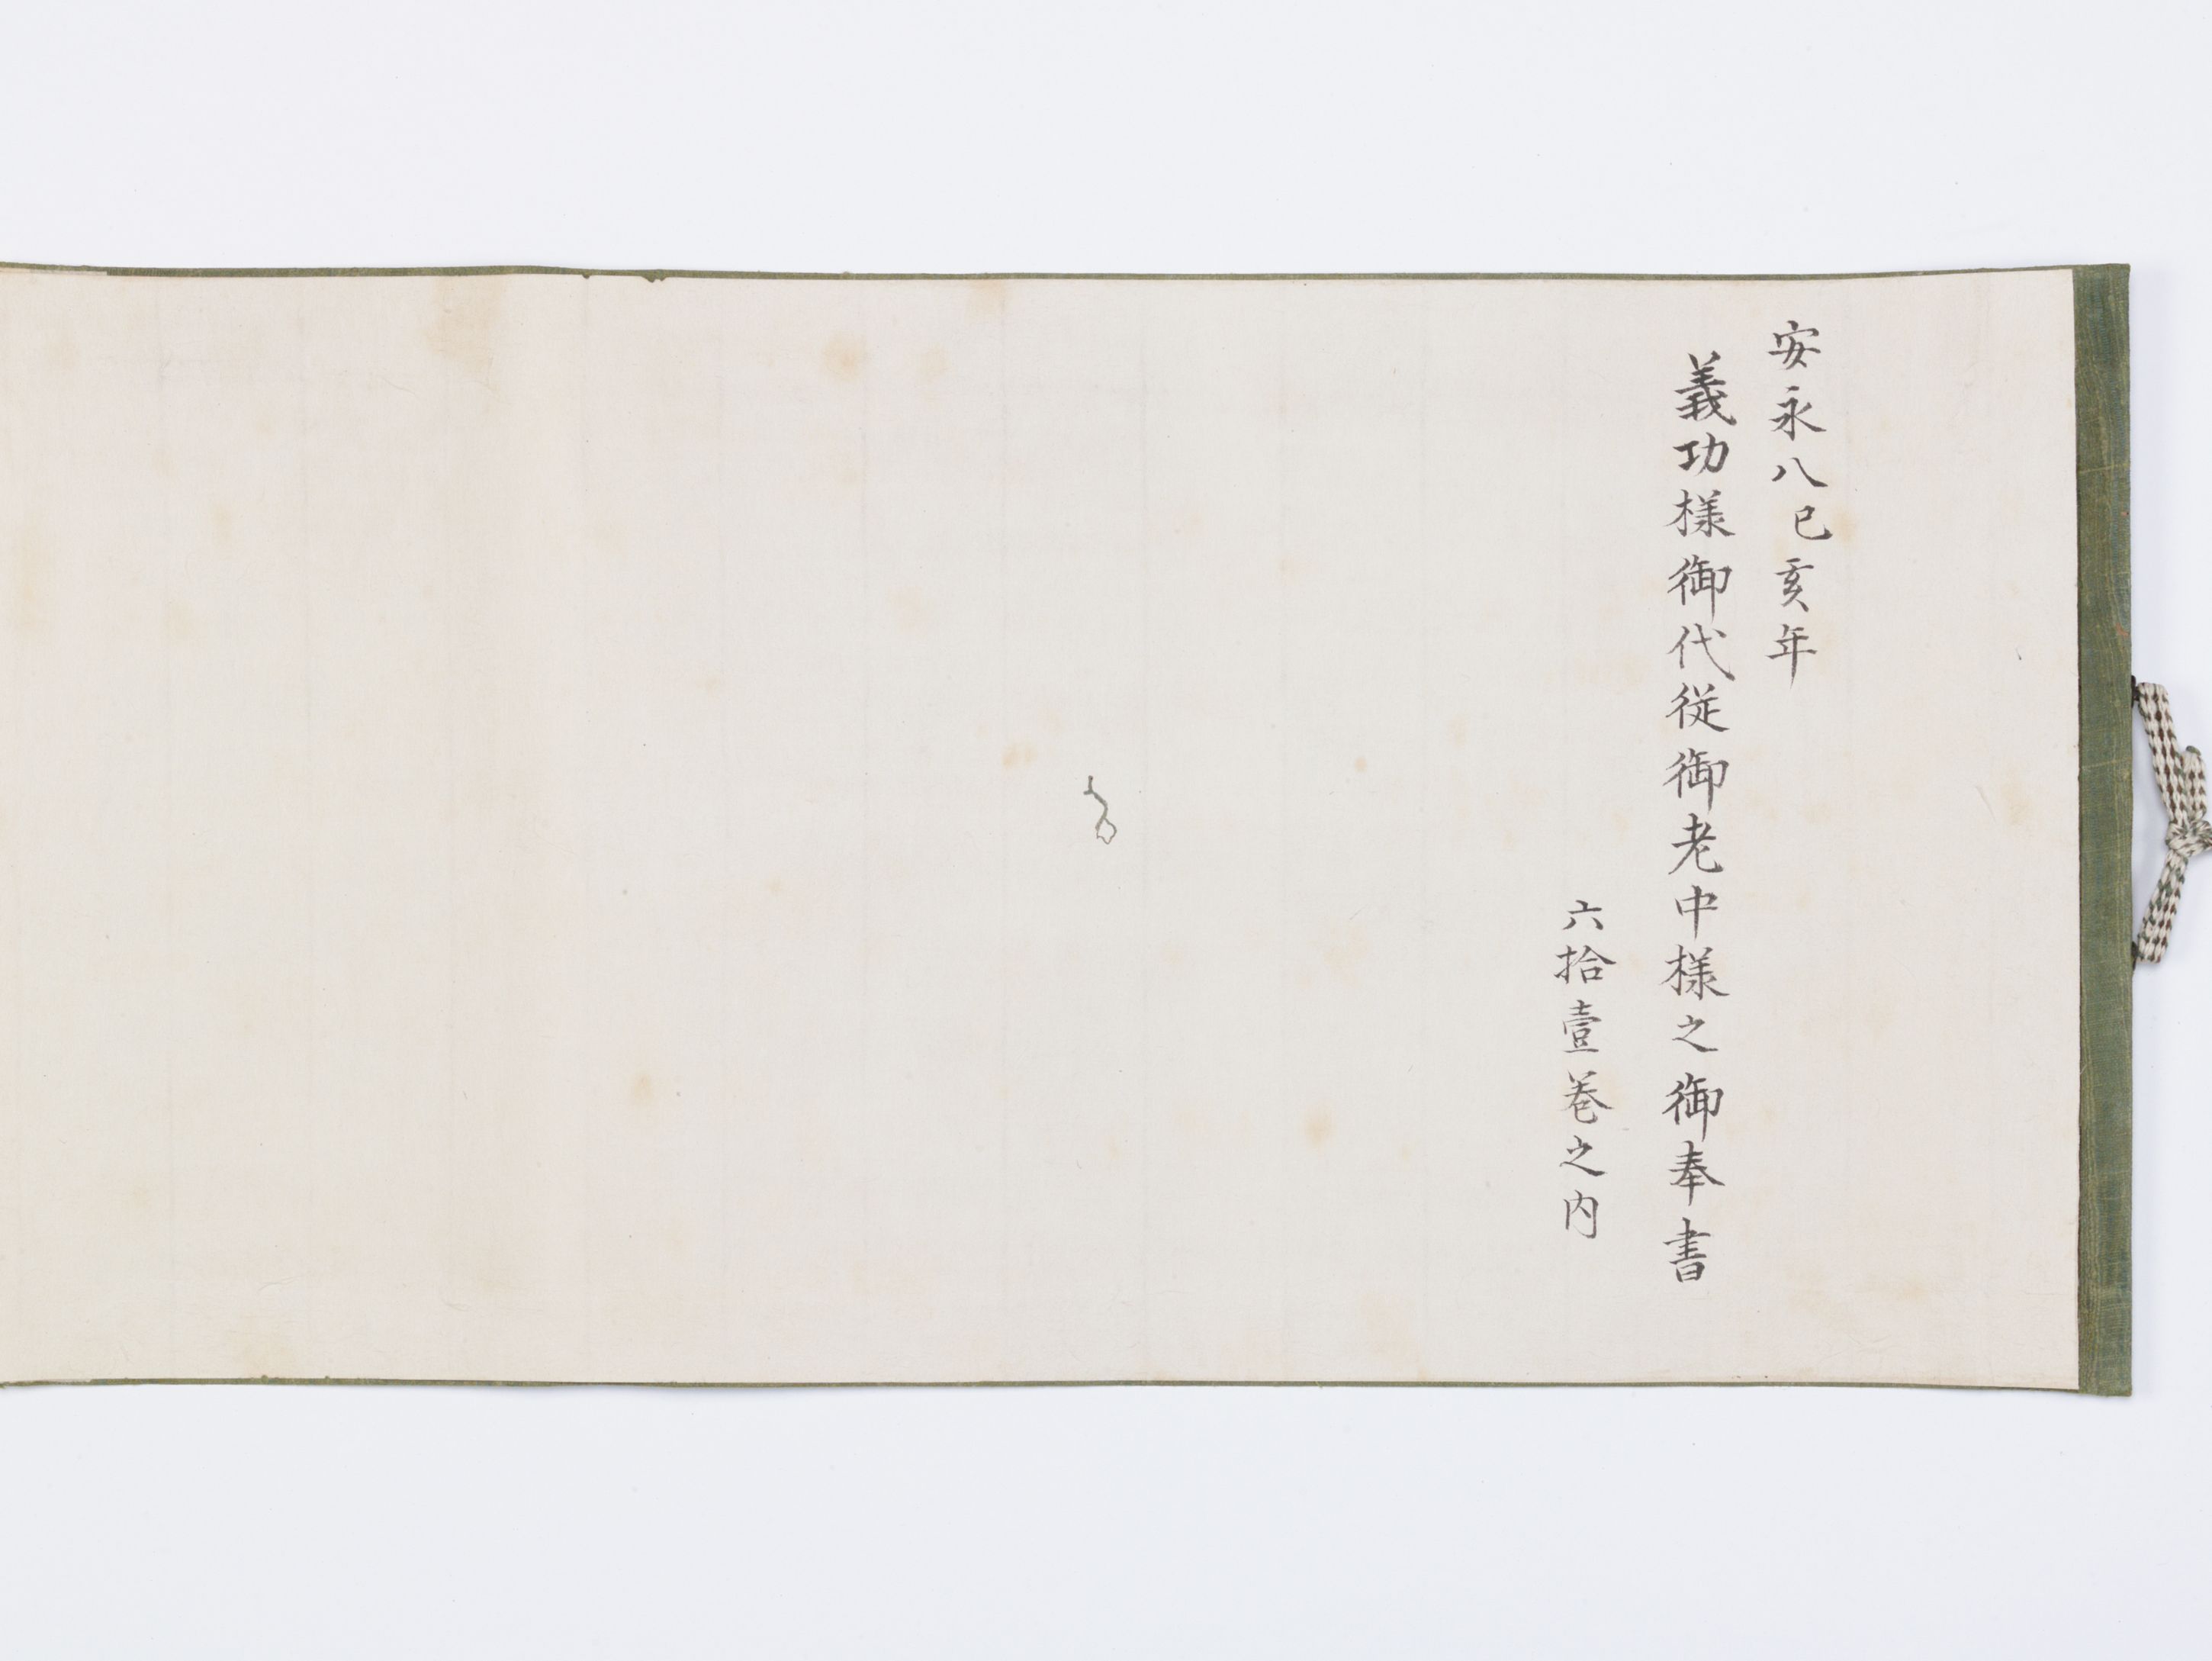 安永八己亥年
義功様御代従御老中様之御奉書
六拾壹巻之内